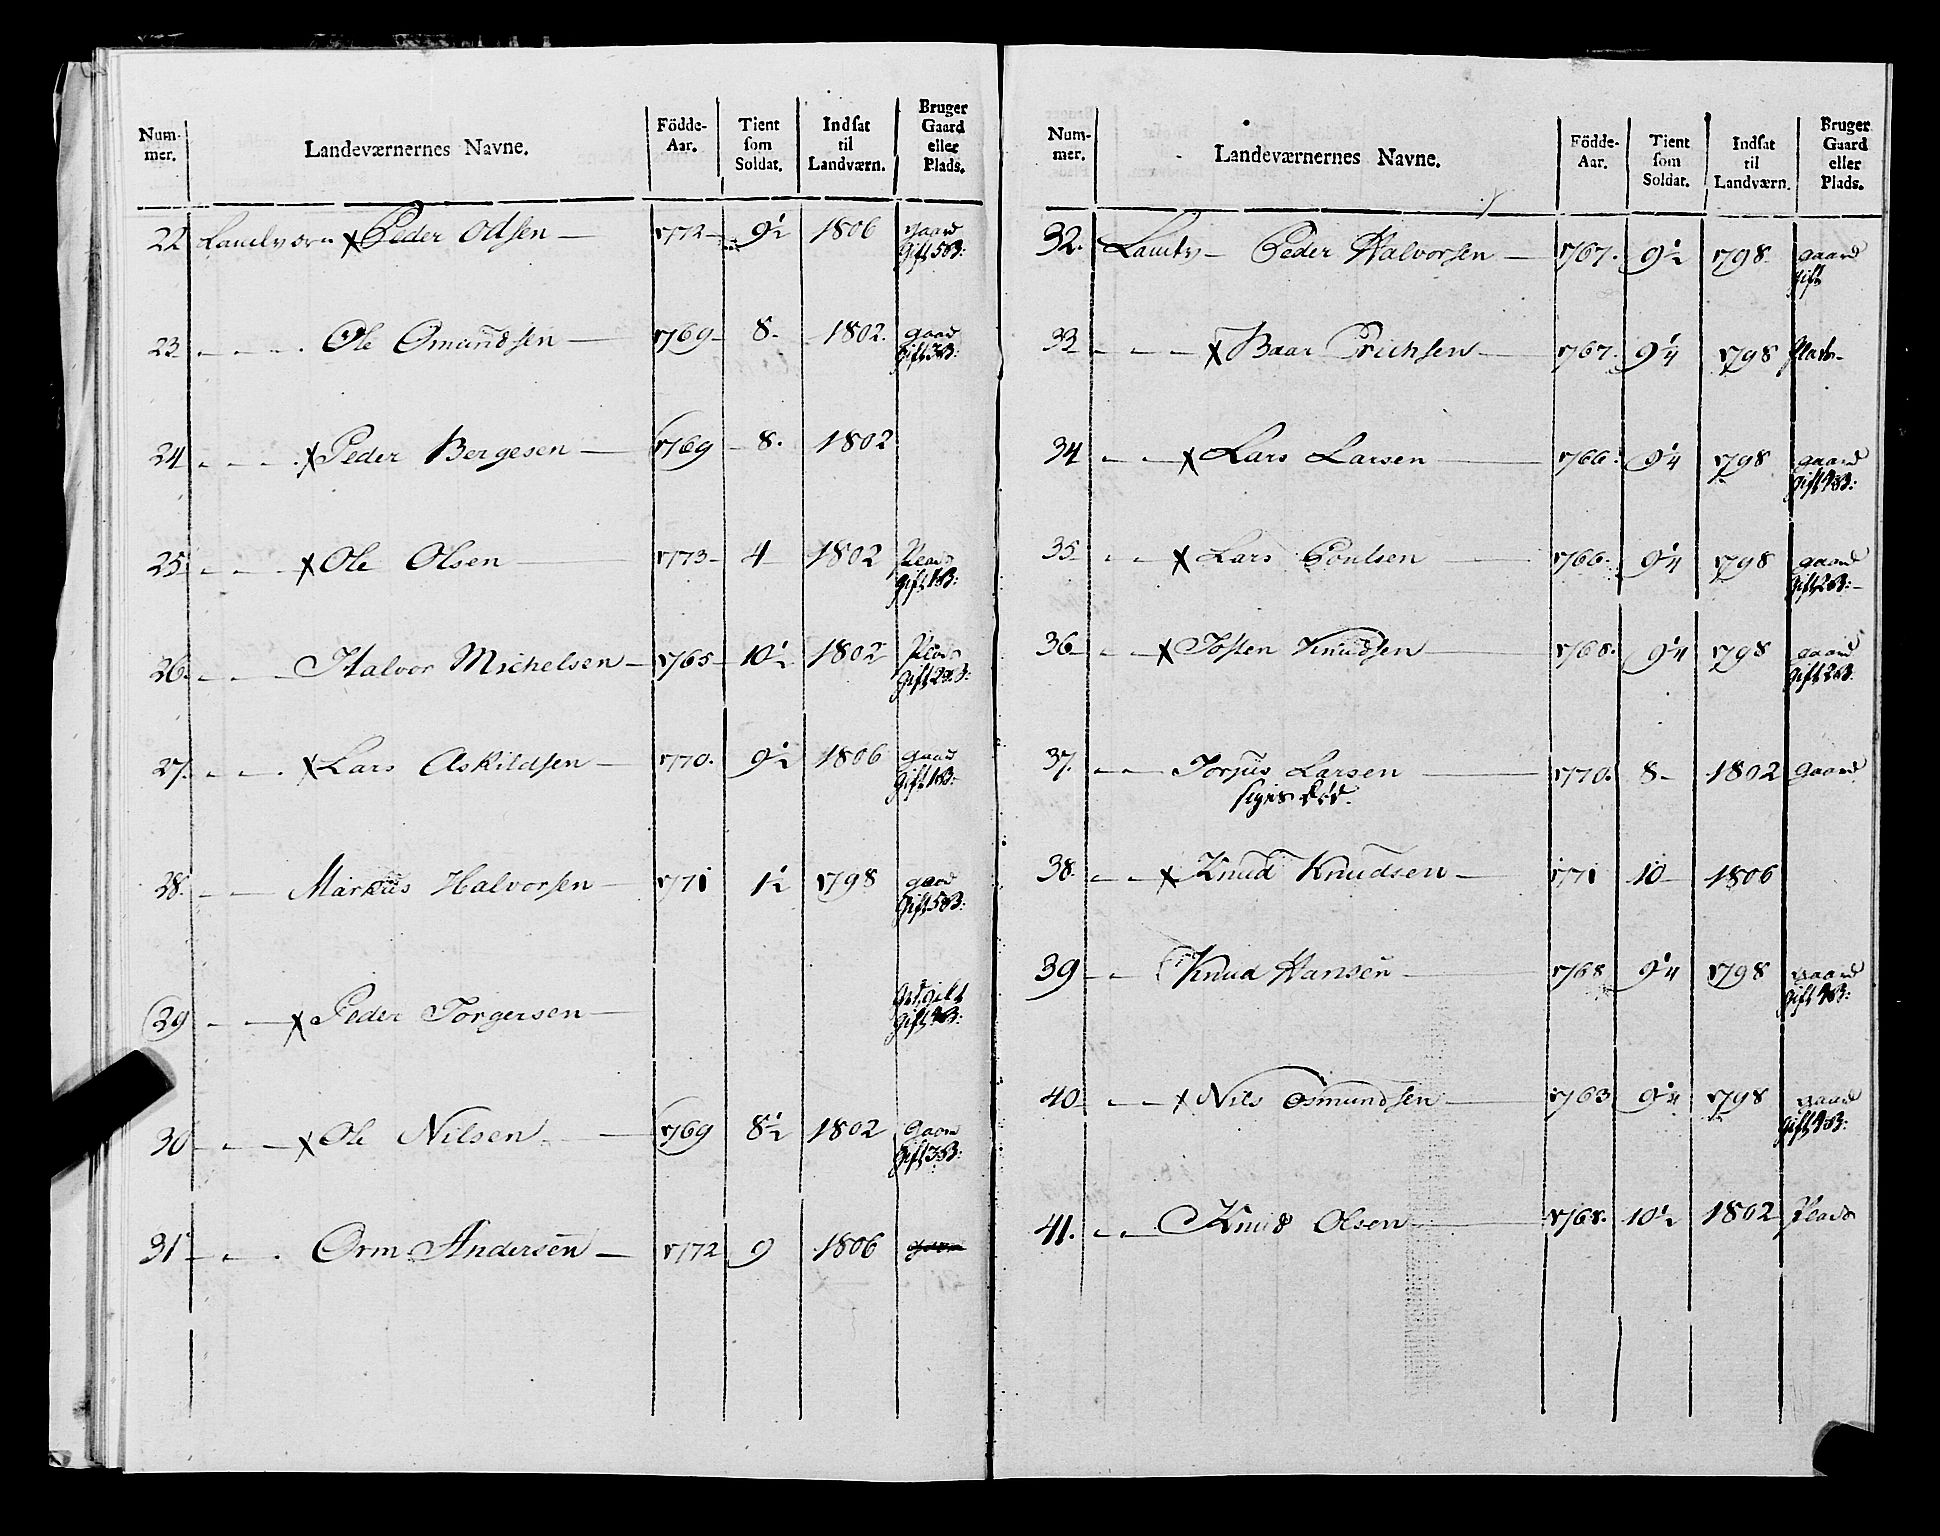 Num-
mer.
Landeværnernes Navne.
Födde-
Aar.
Tient
som
Soldat.
Indsat
til
Landværn.
Bruger
Gaard
eller
Plads.
22 Landværn x Peder Odsen — 1772 — 9½ 1806 gaard
Gift 5 B:
23 - - - Ole Omundsen — 1769 — 8 - 1802. gaard
Gift 3 B:
24 - - - x Peder Bergesen — 1769 — 8. 1802
25 - - - x Ole Olsen — 1773 — 4 1802 Plads
Gift 1 B:
26. - - - Halvor Michelsen — 1765 — 10½ 1802 Plads
Gift 2 B:
27. - - - x Lars Askildsen — 1770. 9½ 1806 gaard
Gift 1 B:
28. - - Markus Halvorsen — 1771 1½ 1798 gaard
Gift 5 B:
29 - - x Peder Torgersen —
Gift 4 B:
30 - - x Ole Nilsen — 1769 8½ 1802 Gaard
Gift 3 B:
31 - - - Orm Andersen — 1772 9 1806
Num-
mer.
Landeværnernes Navne.
Födde-
Aar.
Tient
som
Soldat.
Indsat
til
Landværn.
Bruger
Gaard
eller
Plads.
32. Landv — Peder Halvorsen — 1767. 9½ 1798 gaard
Gift
33 - - - x Baar Erichsen — 1767. 9¼ 1798 Plads
34 - - x Lars Larsen — 1766. 9¼ 1798 gaard
Gift 4 B:
35 - - x Lars Poulsen — 1766. 9¼ 1798 gaard
Gift 2 B:
36 - - x Tosten Knudsen — 1768. 9¼ 1798 gaard
Gift 2 B:
37. - - Torjus Larsen — 1770. 8 - 1802 Gaard
siges død.
38. - - x Knud Knudsen — 1771 10 1806
39 - - Knud Hansen — 1768 9¼ 1798 gaard
Gift 4 B:
40 - - x Nils Osmundsen — 1763 9¼ 1798 gaard
Gift 4 B:
41. - - Knud Olsen — 1768. 10½ 1802 Plads